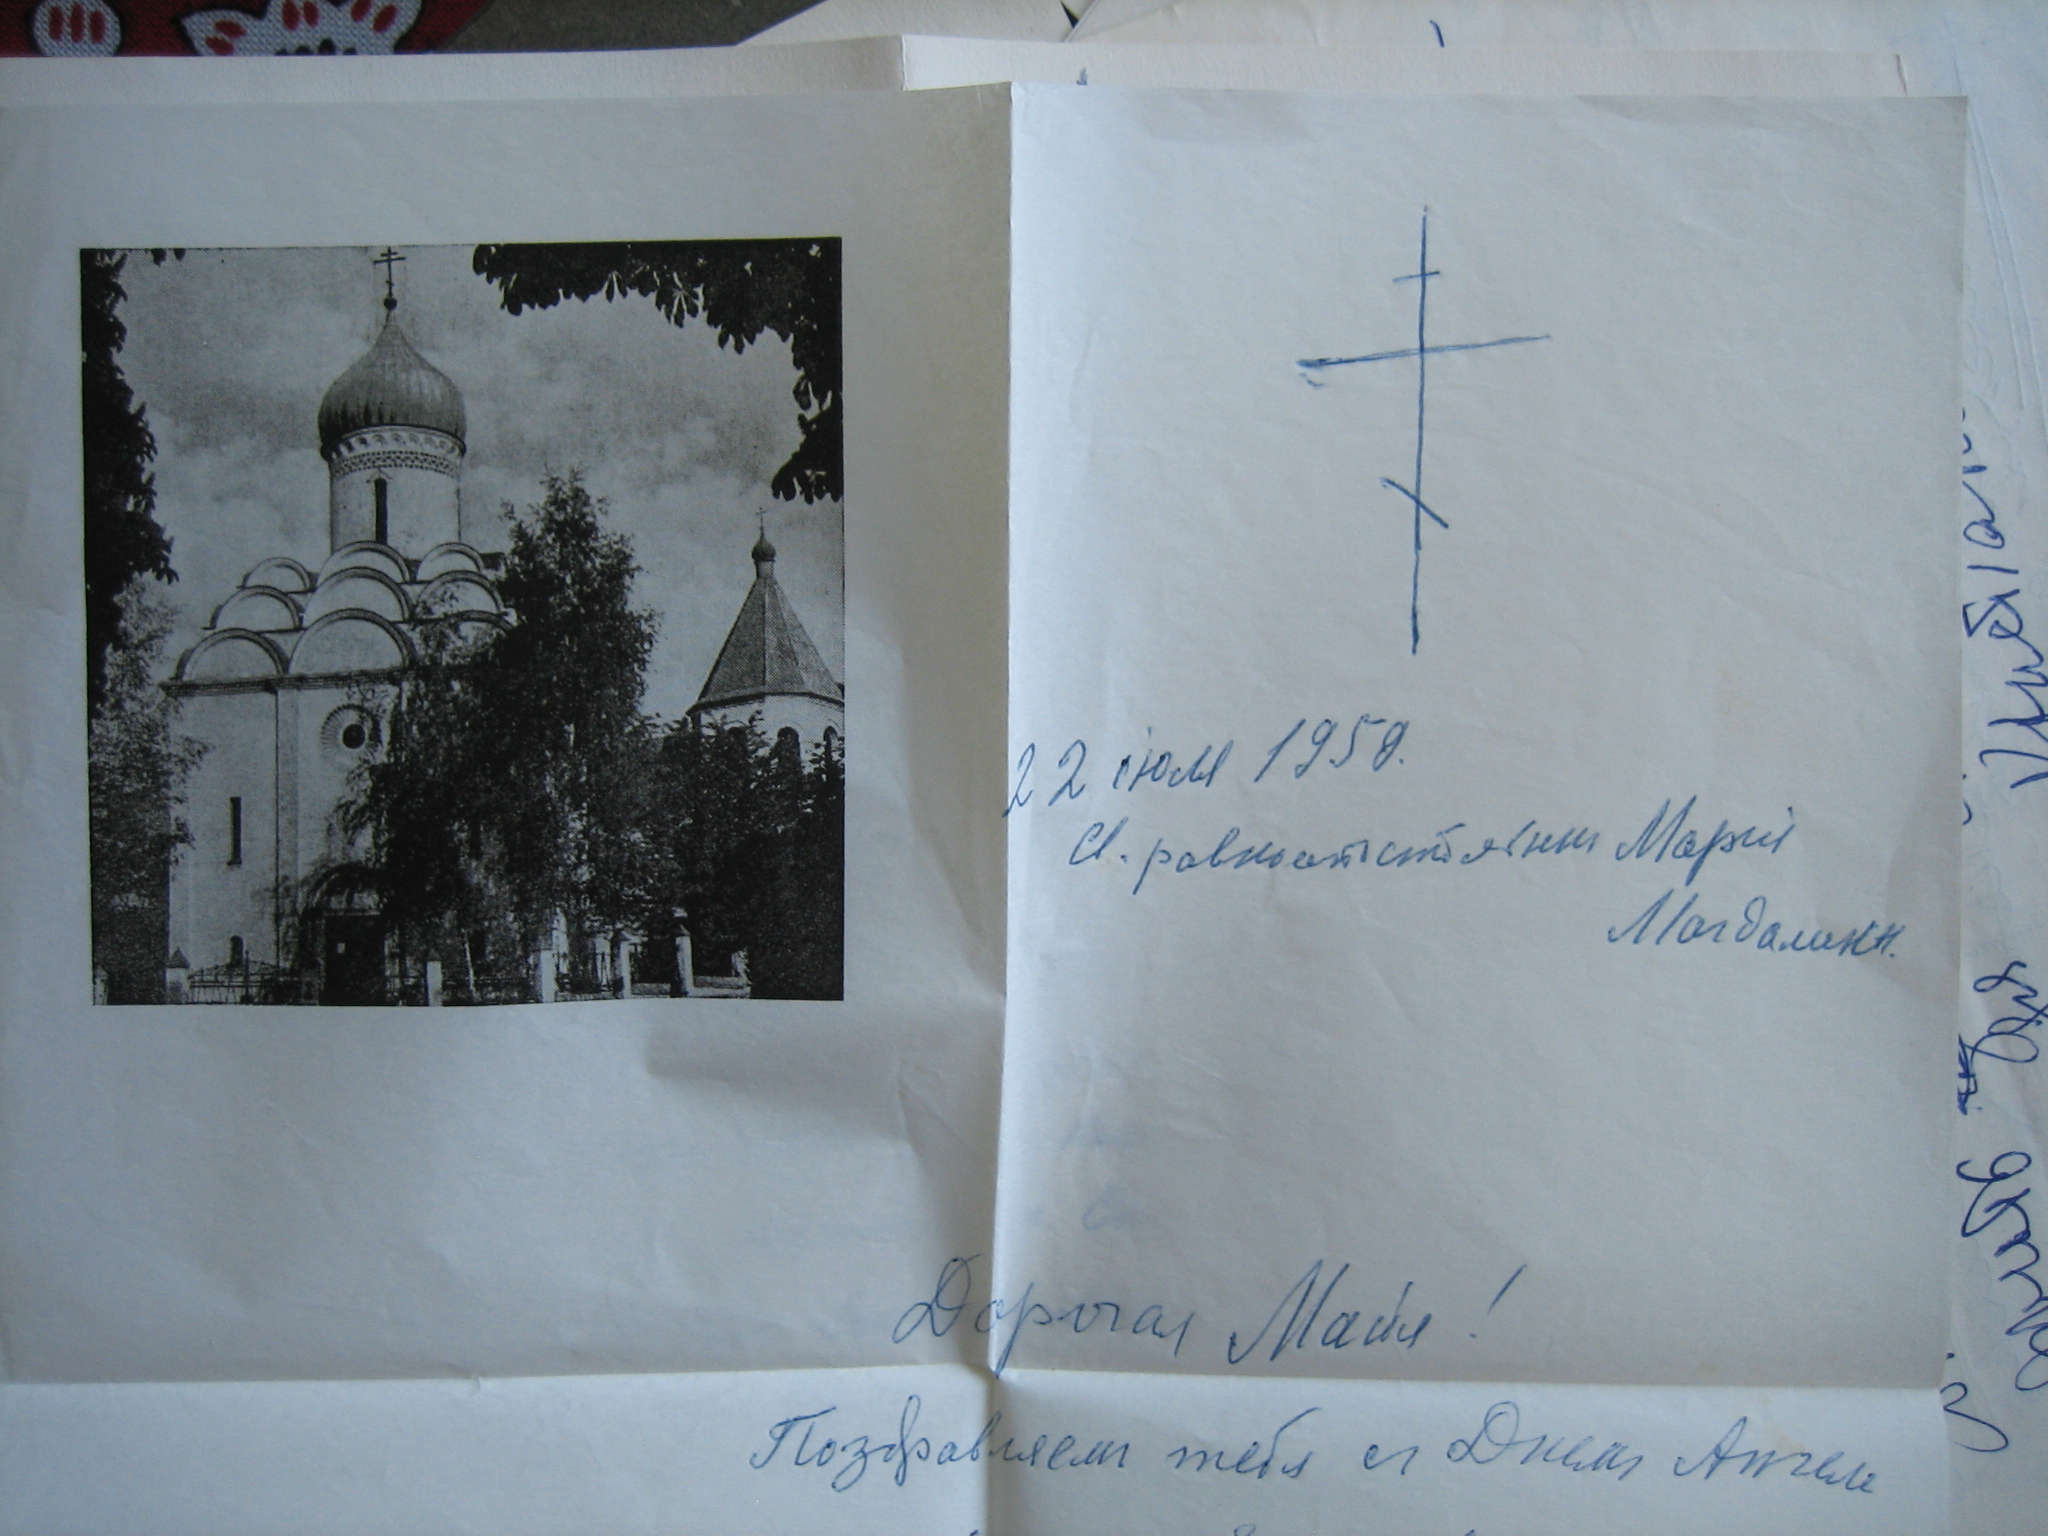 22 іюля 1958.
Св. равноапостольн Маріи
Магдалины.
Дорогая Майя!
Поздравляем тебя с Днем Ангела